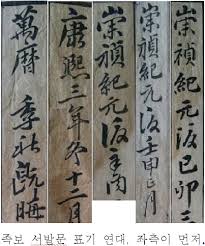 萬曆 季秋旣晦
康熙三年冬十二月
崇禎紀元後辛酉
崇禎紀元後壬申正月
崇禎紀元後己卯三
족보 서발문 표기 연대. 좌측이 먼저.